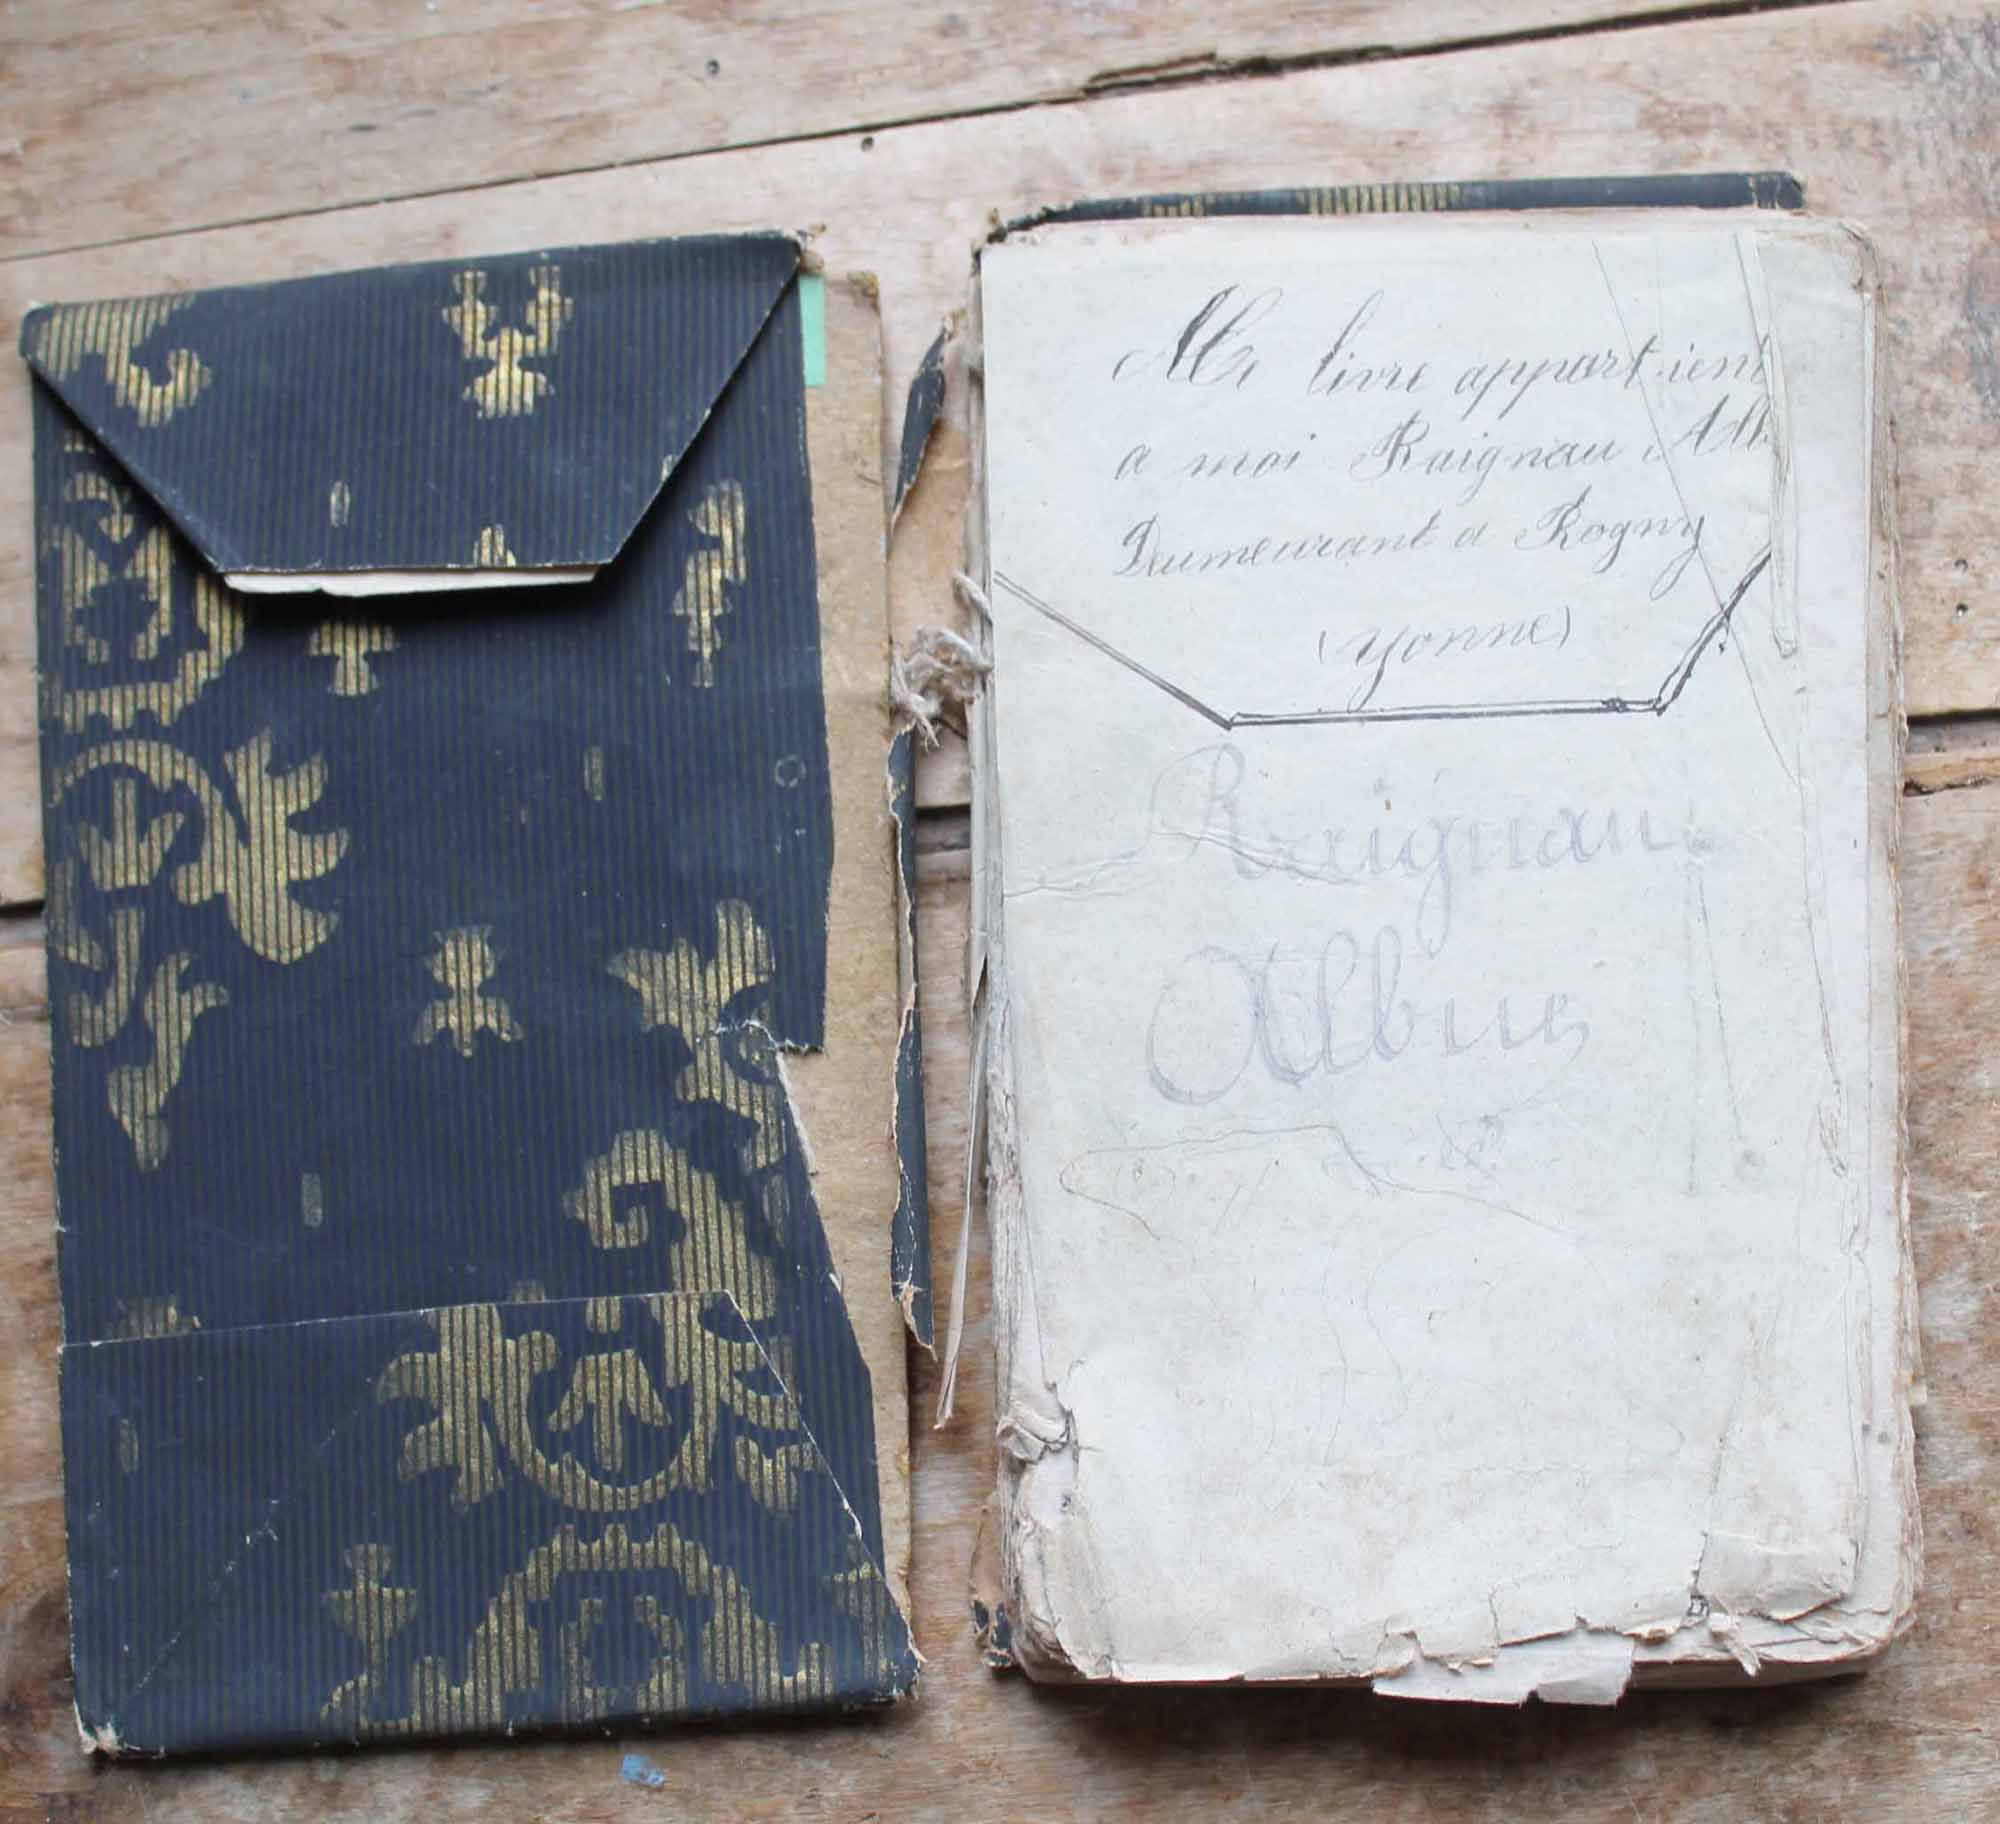 Ce livre appartient
a moi Raignau Alb
Deumeurant a Rogny
(Yonne)
Raignau
Albine